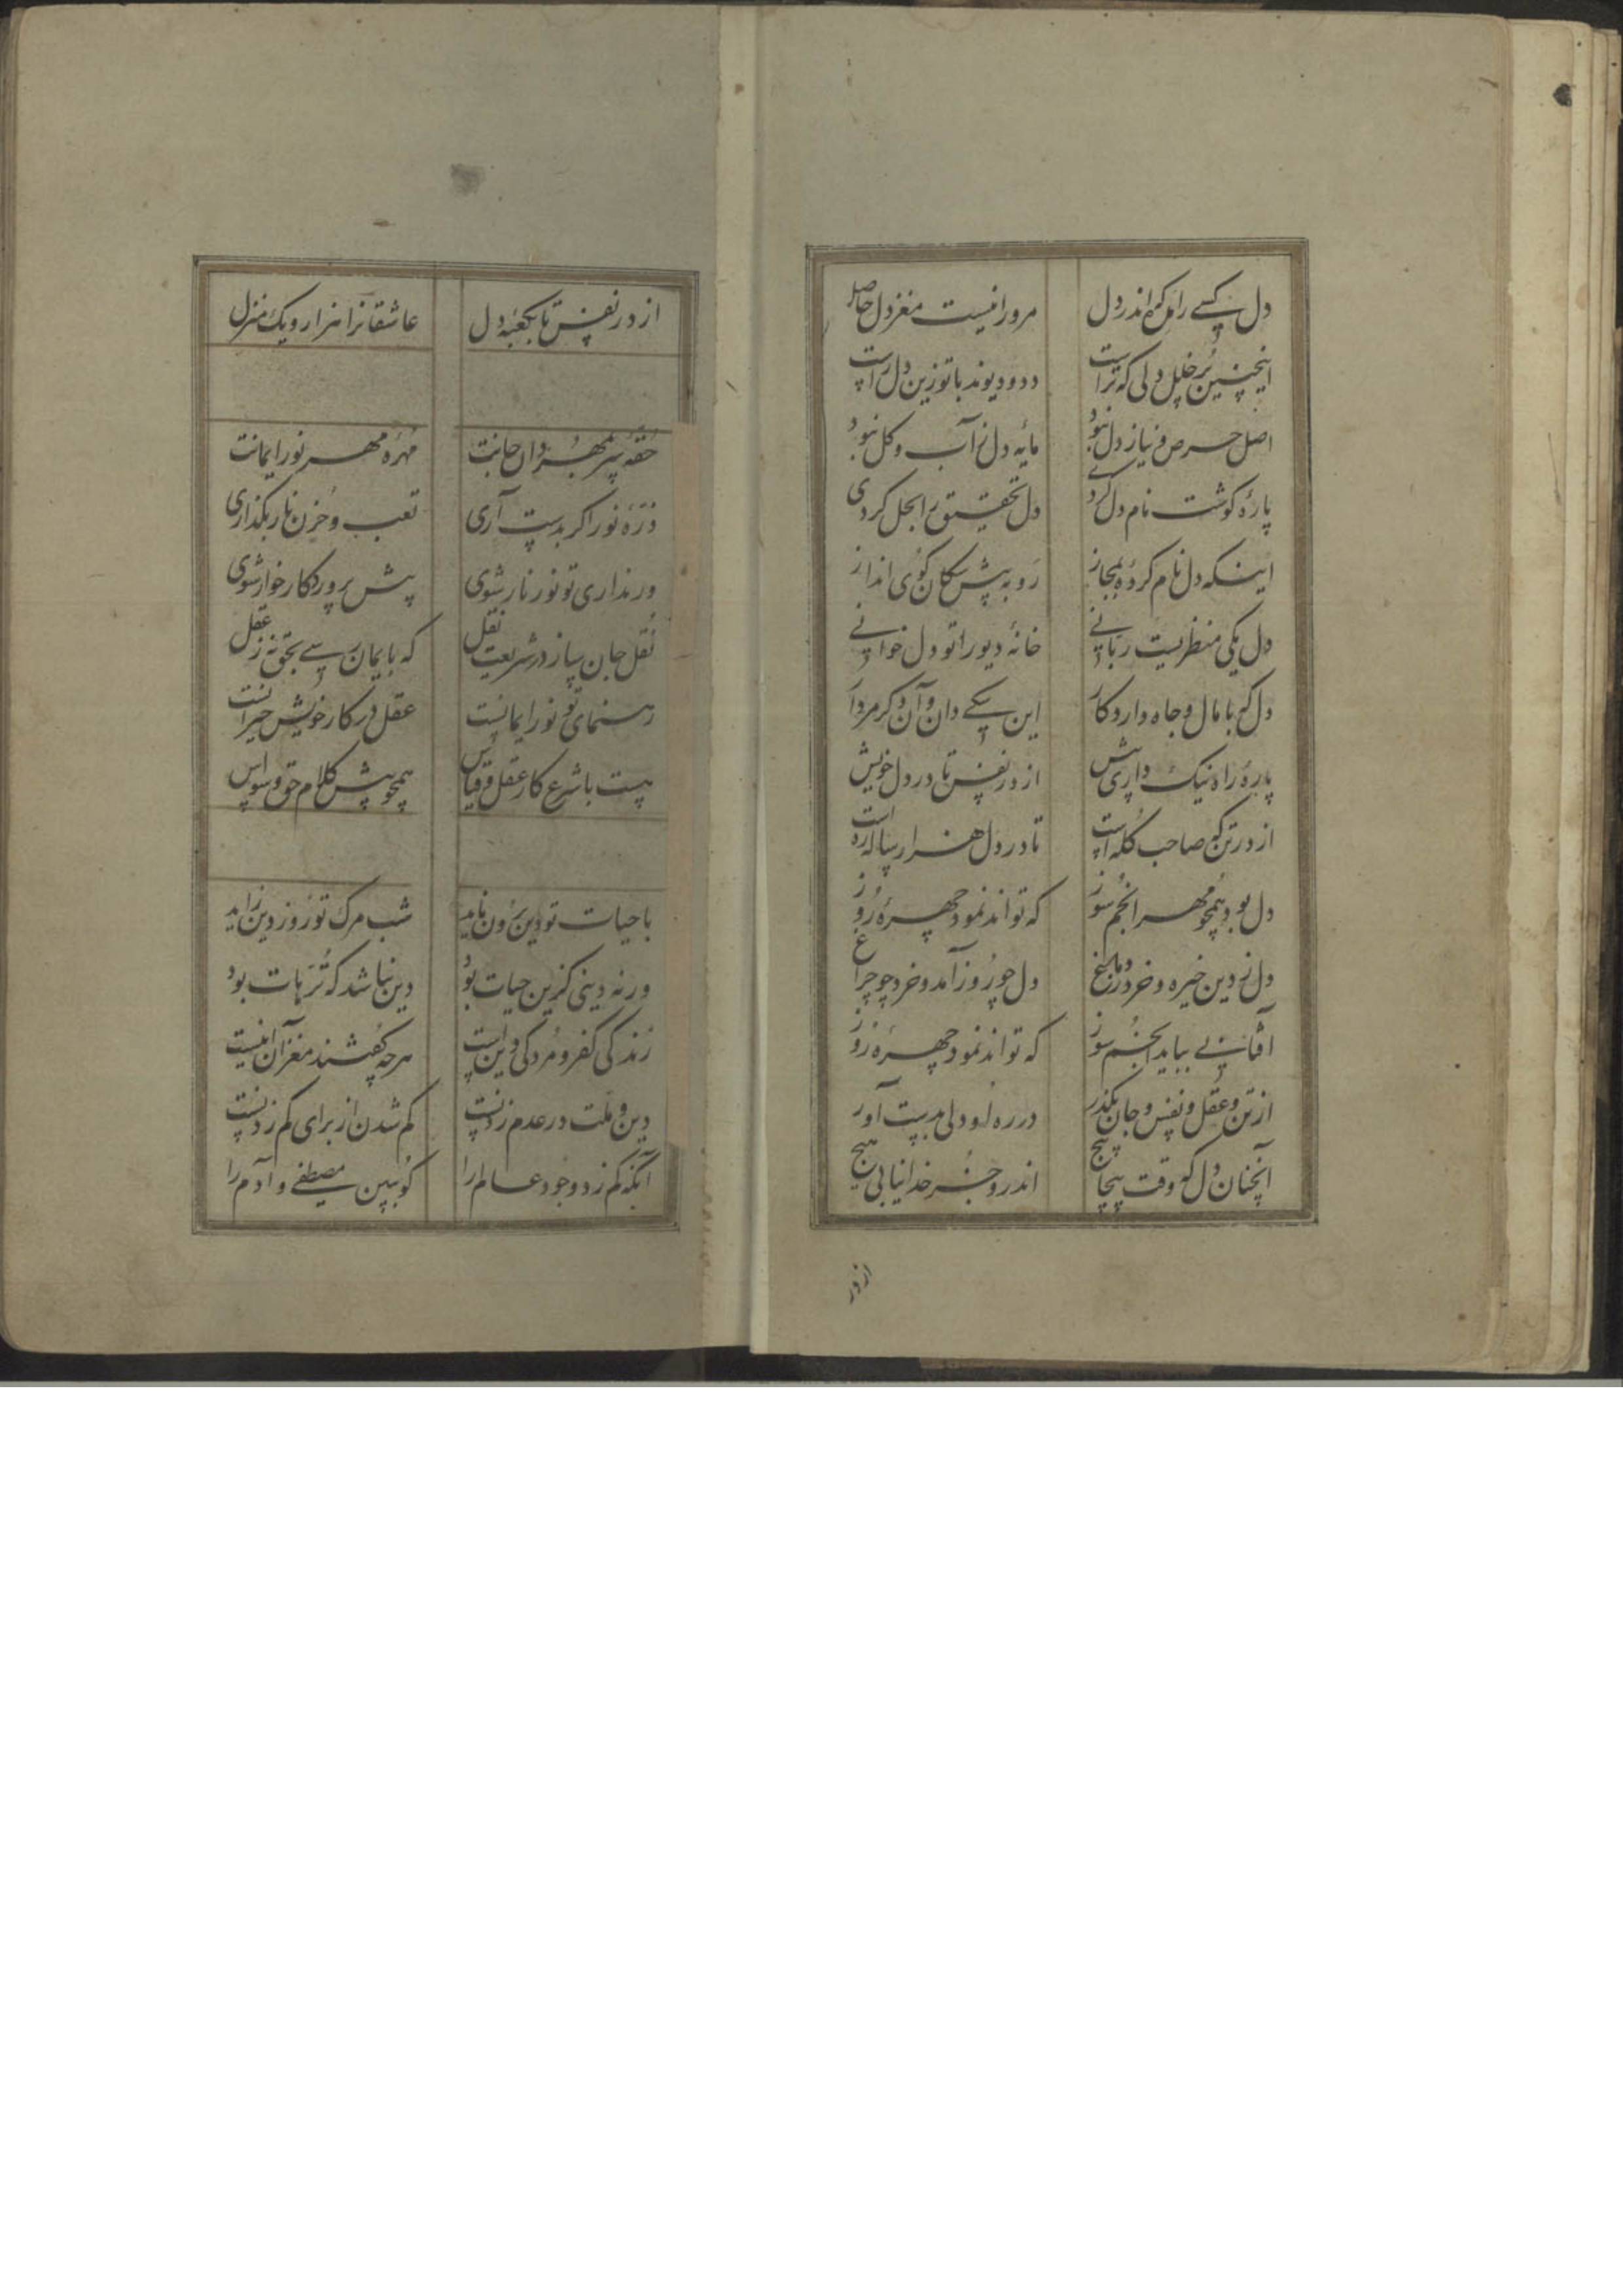 دل کسی را که اندر دل مرورا نیست مغز دل حاصل
اینچنین پر خلل دلی که تراست دد و دیوند با تو زین دل راست
اصل حرص و نیاز دل نبود مایه دل ز آب و گل نبود
پاره گوشت نام دل کردی دل تحقیق را بحل کردی
اینکه دل نام کرده بمجاز رو به پیش سکان کوی انداز
دل یکی منظریست ربانی خانه دیو را تو دل خوانی
دل که با مال و جاه دارد کار این یکی دان و آن دکر مردار
پاره راه نیک داری پیش از در نفس تا در دل خویش
از در تن که صاحب کله است تا در دل هزار ساله ره است
دل بود همچو مهر انجم سوز که تواند نمود چهره روز
دل ز دین خیره و خرد در ماغ دل چو روز آمد و خرد چو چراغ
آفتابی بباید انجم سوز که تواند نمود چهره روز
از تن و عقل و نفس و جان بگذر در ره او دلی بدست آور
آنچنان دل که وقت پیچاپیچ اندرو جز خدا نیابی هیچ
از در
از در نفس تا بکعبه دل عاشقانرا هزار و یک منزل
حقه سر بمهر دان جانت مهره مهر نور ایمانت
ذره نور اکر بدست آری تعب و حزن نار بگذاری
ور نداری تو نور نار شوی پیش پروردکار خوار شوی
نقل جان ساز در شریعت نقل که بایمان رسی بحق نه ز عقل
رهنمای تو نور ایمانست عقل در کار خویش حیرانست
هست با شرع کار عقل و قیاس همچو پیش کلام حق وسواس
با حیات تو دین برون ناید شب مرک تو روز دین زاید
ورنه دینی کزین حیات بود دین نباشد که ترهات بود
زندکی کفر و مردکی دین است هرچه گفتند مغز آن اینست
دین و ملت در عدم زدنست کم شدن از برای کم زدنست
آنکه کم زد وجود عالم را کو ببین مصطفی و آدم را